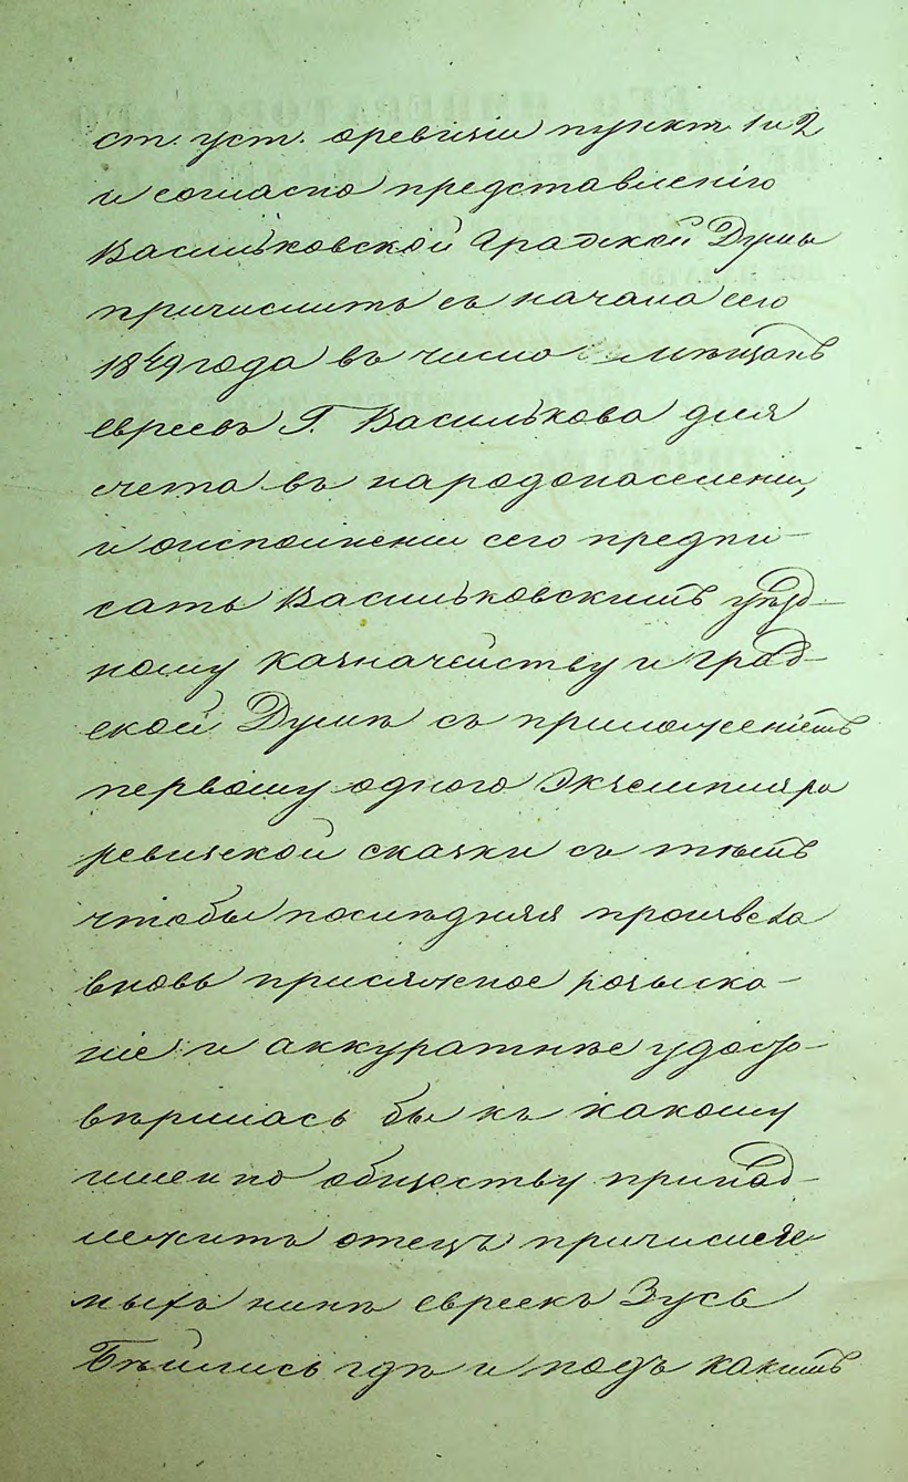 ст. уст. оревизіи пунктъ 1 и 2
и согласно представленію
Васильковской Градской Думы
причислить съ начала сего
1849 года въ число мѣщанъ
евреевъ Г. Василькова для
счета въ народонаселеніи,
и оисполненіи сего предпи-
сать Васильковскимъ уѣзд-
ному казначейству и Град-
ской Думѣ съ приложеніемъ
первому одного экземпляра
ревизской сказки съ тѣмъ
чтобы послѣдняя произвела
вновь присяжное розыска-
ніе и аккуратнѣе удосто-
вѣрилась бы къ какому
именно обществу принад-
лежитъ отецъ причисляе-
мыхъ нынѣ евреекъ Зусь
Бѣйлисъ гдѣ и подъ какимъ